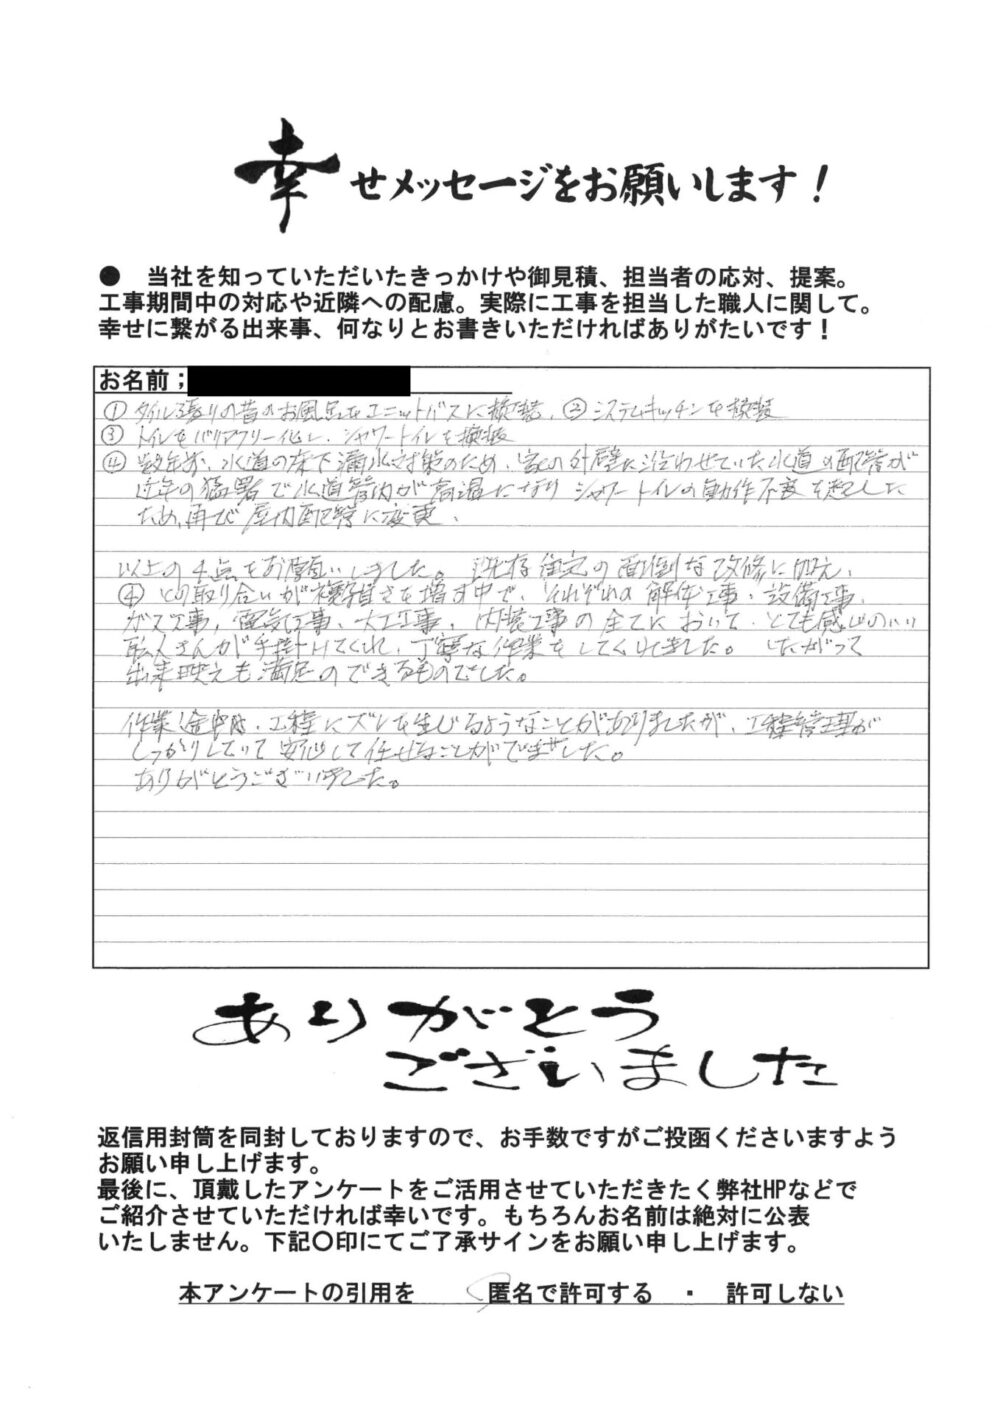 幸せメッセージをお願いします！
● 当社を知っていただいたきっかけや御見積、担当者の応対、提案。
工事期間中の対応や近隣への配慮。実際に工事を担当した職人に関して。
幸せに繋がる出来事、何なりとお書きいただければありがたいです！
お名前；
① タイル張りの昔のお風呂をユニットバスに換装、② システムキッチンを換装
③ トイレをバリアフリー化し、シャワートイレを換装
④ 数年前、水道の床下漏水対策のため、家の外壁に沿わせていた水道の配管が
近年の猛暑で水道管内が高温になり シャワートイレの動作不良を起こした
ため、再び屋内配管に変更、
以上の4点をお願いしました。既存住宅の面倒な改修に加え、
④との取り合いが複雑さを増す中で、それぞれの解体工事、設備工事、
ガス工事、電気工事、大工工事、内装工事の全てにおいて、とても感じのいい
職人さんが手掛けてくれ、丁寧な作業をしてくれました。したがって
出来映えも満足のできるものでした。
作業途中は、工程にズレを生じるようなことがありましたが、工程管理が
しっかりしていて安心して任せることができました。
ありがとうございました。
ありがとう
ございました
返信用封筒を同封しておりますので、お手数ですがご投函くださいますよう
お願い申し上げます。
最後に、頂戴したアンケートをご活用させていただきたく弊社HPなどで
ご紹介させていただければ幸いです。もちろんお名前は絶対に公表
いたしません。下記〇印にてご了承サインをお願い申し上げます。
本アンケートの引用を 匿名で許可する ・ 許可しない